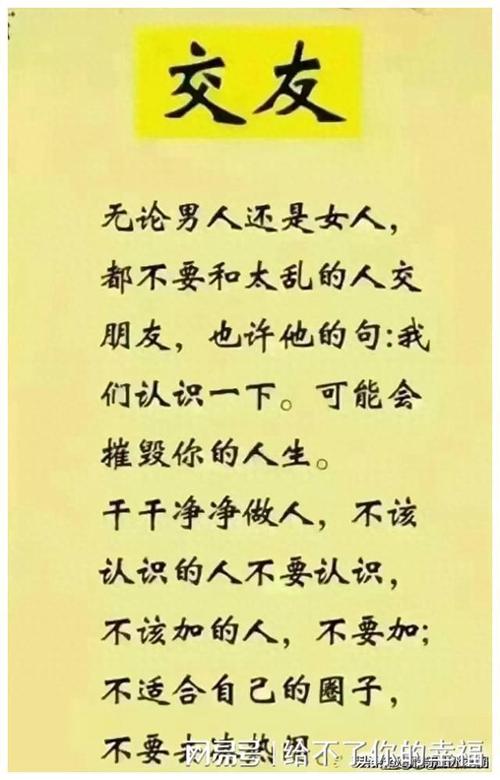 交友
无论男人还是女人,
都不要和太乱的人交
朋友,也许他的句:我
们认识一下。可能会
摧毁你的人生。
干干净净做人,不该
认识的人不要认识,
不该加的人,不要加;
不适合自己的圈子,
不要去凑热闹
网易号|给不了你的幸福